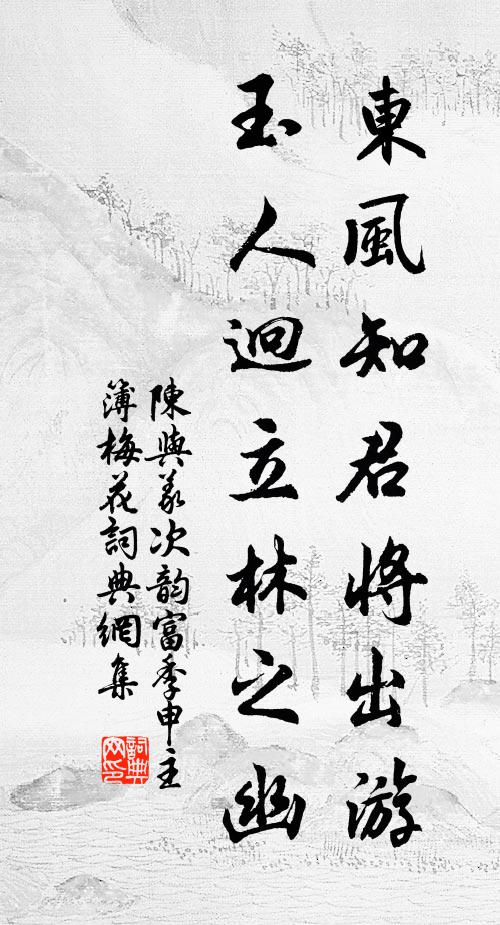 東風知君將出游
玉人迥立林之幽
陳與義次韵富季申主
簿梅花詞典網集
詞典网印